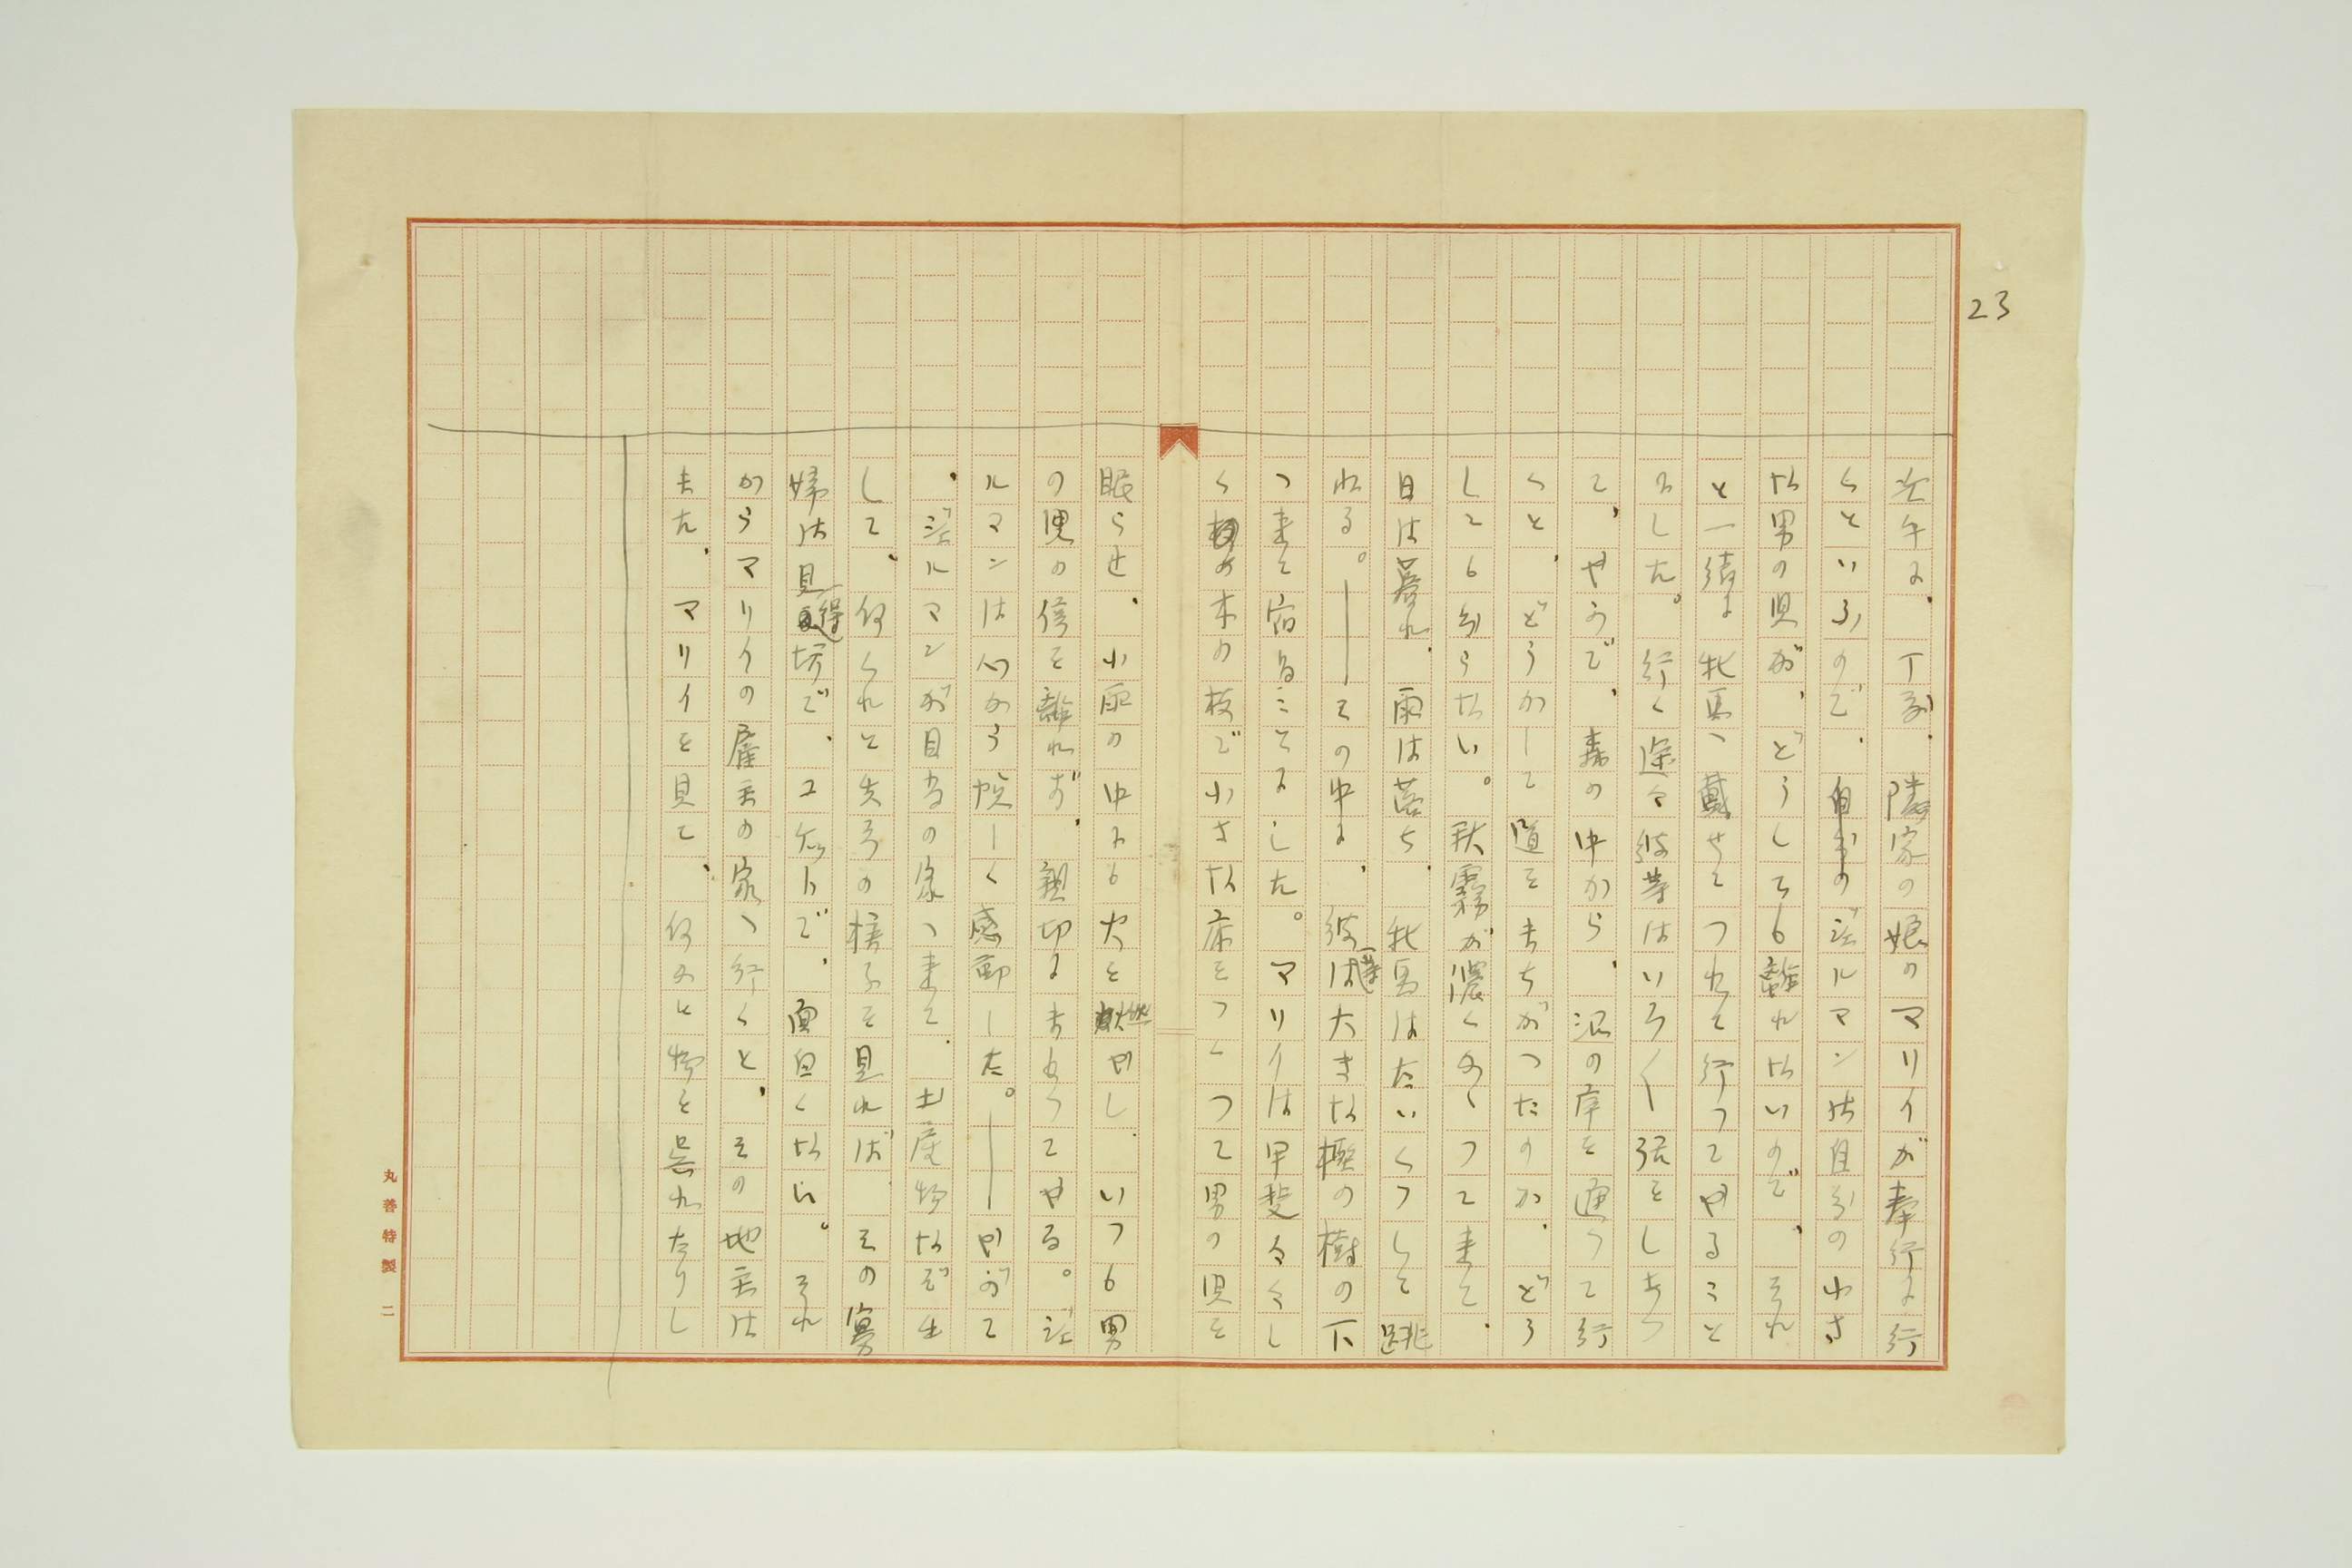 23
丁度、隣家の娘のマリイが奉行に行
くといふので、ジエルマンは自分の小さ
な男の児が、どうしても離れないので、それ
と一緒に牝馬へ載せてつれて行つてやること
にした。行く途々彼等はいろ〱話をしあつ
て、やがて、森の中から、沼の岸を通つて行
くと、どうかして道をまちがつたのか、どう
しても分らない。秋霧が濃くなつて来て、
日は暮れ、雨は落ち、牝馬はたいくつして跳
ねる。――その中に、彼等は大きな樫の樹の下
へ来て宿ることにした。マリイは甲斐々々し
くの木の枝で小さな床をつくつて男の児を
眠らせ、小雨の中にも火を燃やし、いつも男
の児の傍を離れず、親切にまもつてやる。ジエ
ルマンは心から悦しく感動した。――やがて
、ジエルマンが目的の家へ来て、土産物など出
して、何くれと先方の様子を見れば、その寡
婦は見得坊で、コケットで、面白くない。それ
からマリイの雇主の家へ行くと、その地主は
また、マリイを見て、何かと物を呉れたりし
丸善特製 二